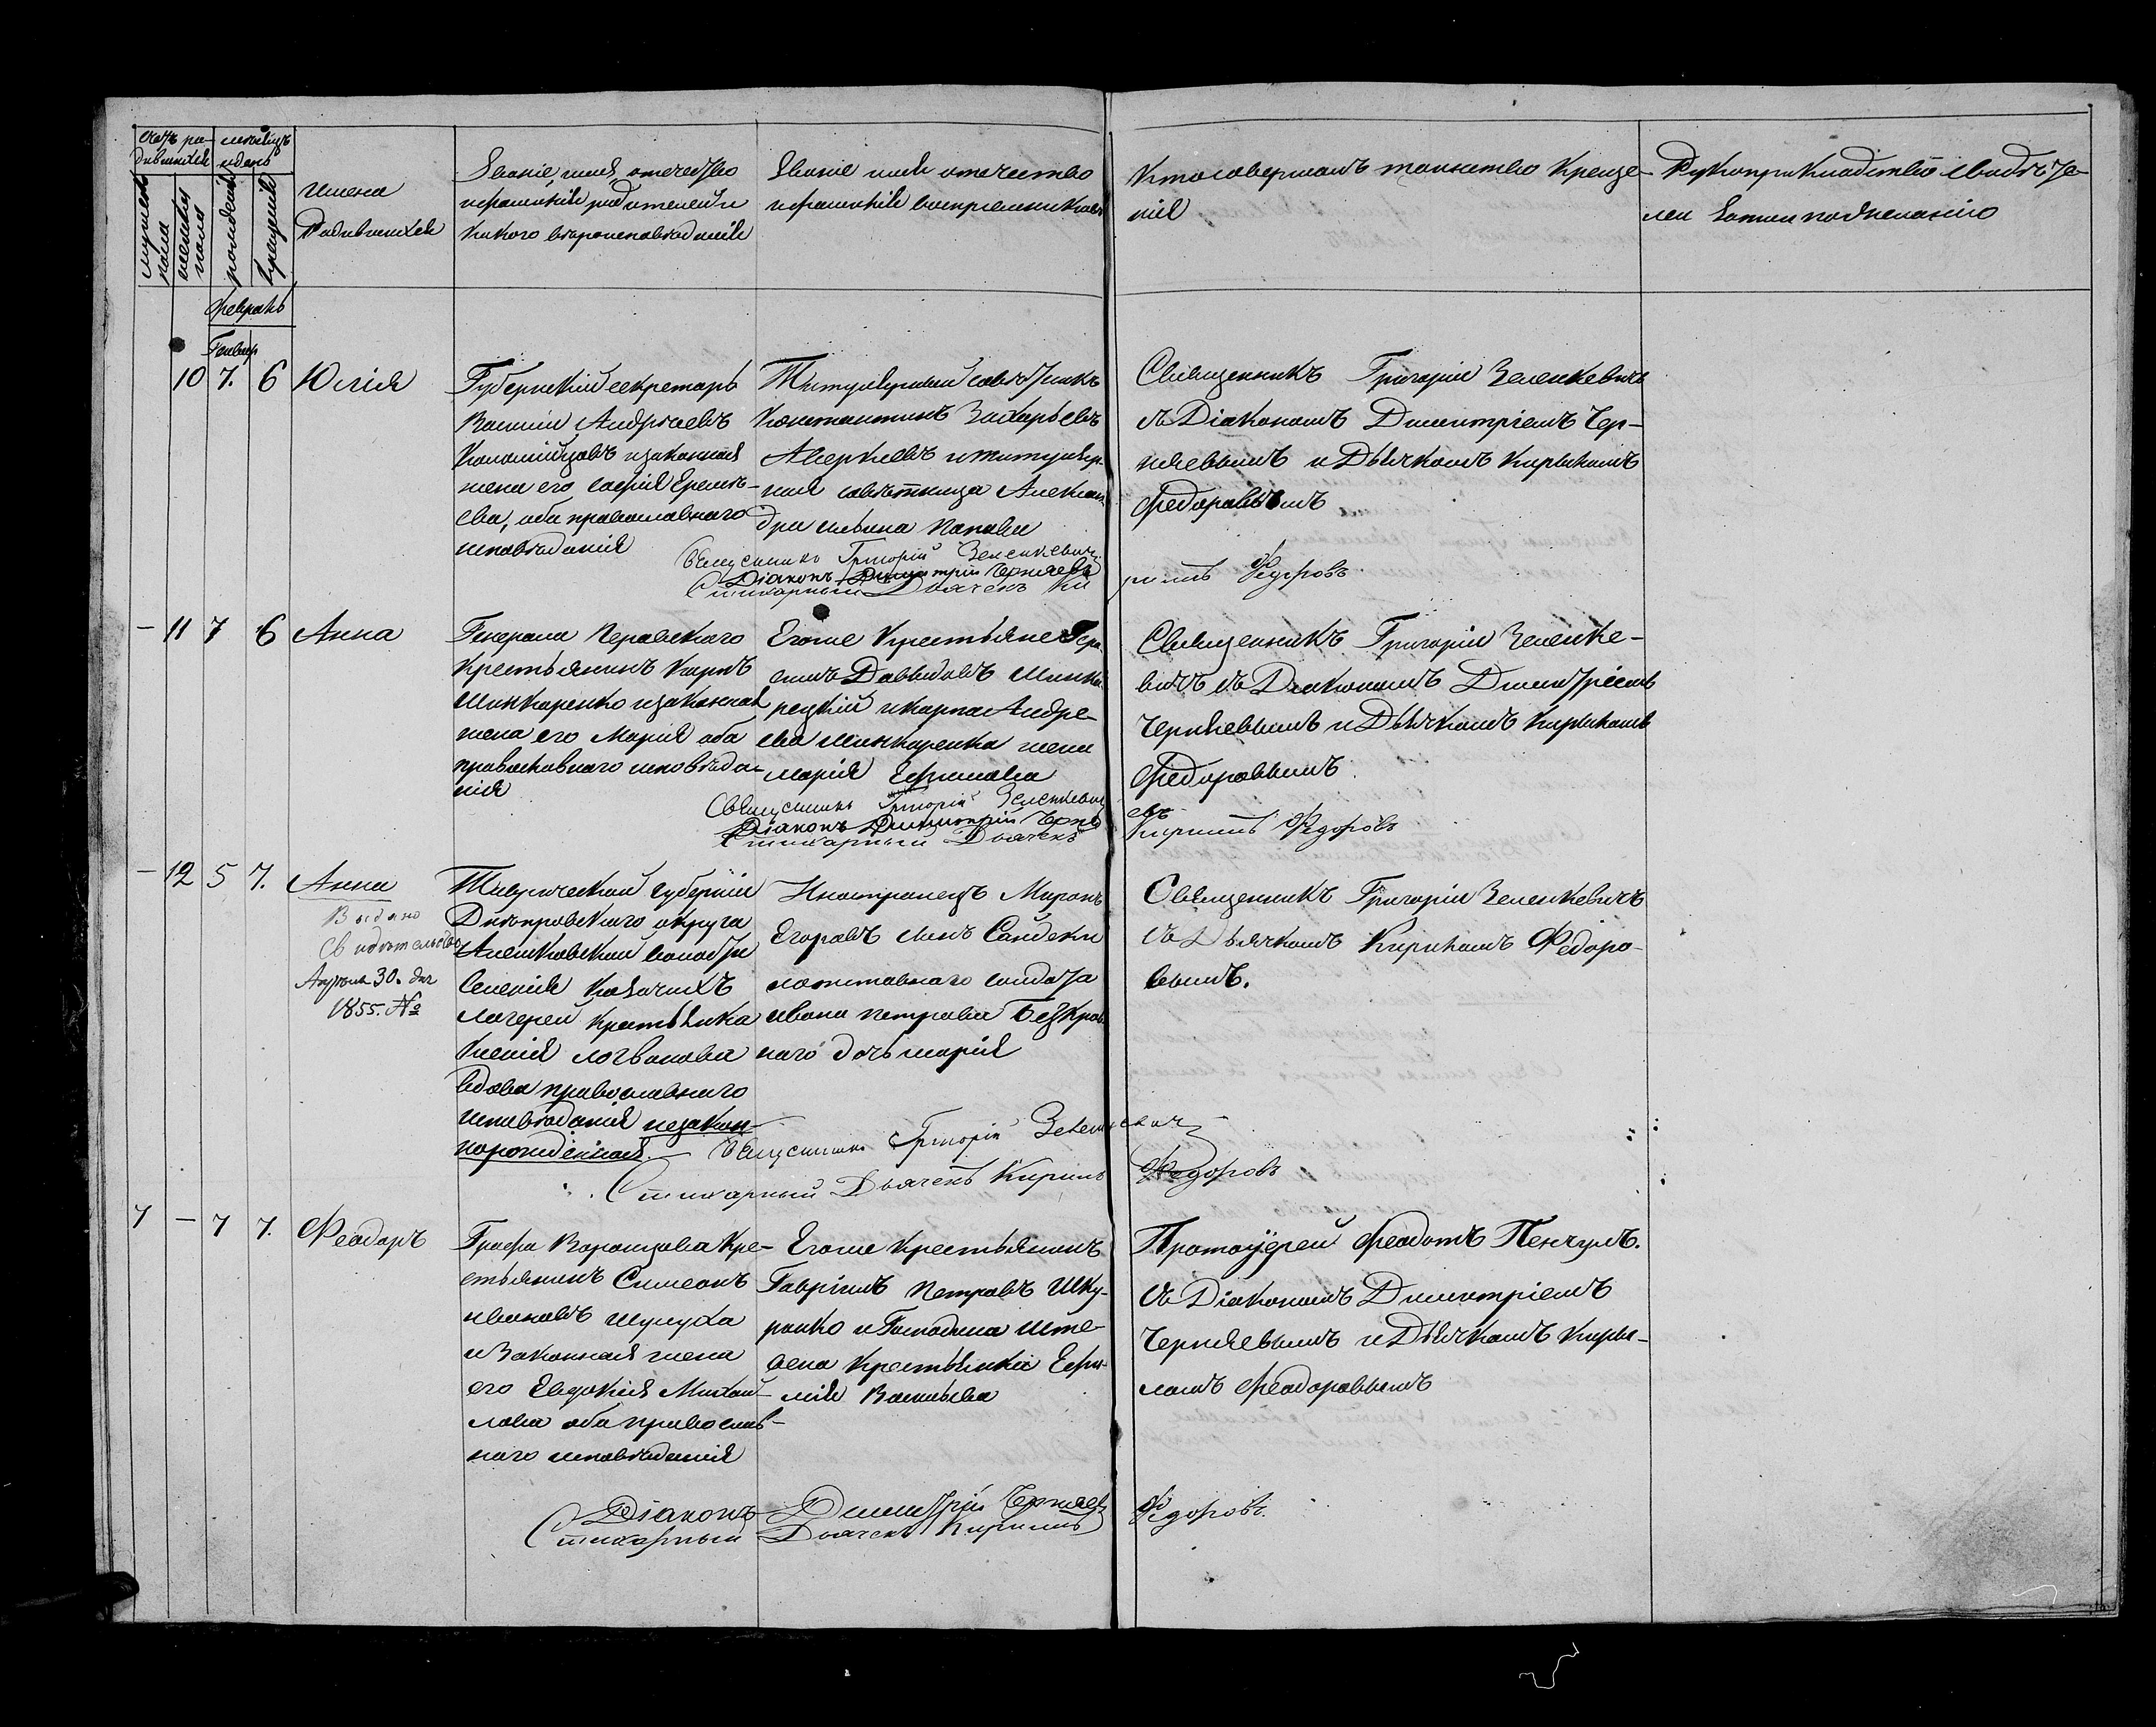 Счетъ ро-
дившихся
мѣсяцъ
и день
мужеска
пола
женска
пола
рожденія
крещенія
имена
Родившихся
Званіе, имя, отечество
и фамилія родителей и
какого вѣроисповѣданія
Званіе имя отечество
и фамилія воспріемниковъ
Кто совершалъ таинство Креще-
нія
Рукоприкладство свидѣте-
лей записи по желанію
Февраль
Генвар
10 7. 6 Юлія
Губернскій секретарь
Василій Андреевъ
Коломійцовъ и законная
жена его Софія Еремѣ-
ева, оба православнаго
исповѣданія
Титулярный совѣтникъ
Константинъ Захарьевъ
Аверкіевъ и титуляр-
ная совѣтница Алексан-
дра Ильина Попова
Священникъ Григорій Зеленкевичь
съ Діакономъ Димитріемъ Чер-
няевымъ и Дьячкомъ Кириломъ
Федоровымъ
Священникъ Григорій Зеленкевичь
Діаконъ Димитрій Черняевъ
Стихарный Дьячекъ Ки
рилъ Федоровъ
— 11 7 6 Анна
Генерала Перовскаго
Крестьянинъ Карпъ
Шинкаренко и законная
жена его Марія оба
православнаго исповѣда-
нія
Егоже Крестьяне Гера-
симъ Давыдовъ Шинка-
рецкій и карпа Андре-
ева Шинкаренка жена
Марія Ефимова
Священникъ Григорій Зеленке-
вичъ съ Діакономъ Димитріемъ
Черняевымъ и Дьячкомъ Кириломъ
Федоровымъ
Священникъ Григорій Зеленкевич
Діаконъ Димитрій Черня
евъ
Стихарный Дьячекъ
Кирилъ Федоровъ
— 12 5 7. Анна
Выдано
Свидѣтельство
30. дня
1855. №
Таврической губерніи
Днѣпровскаго округа
Алешковской волости
Селенія Казачихъ
Лагерей крестьянка
Ксенія Логвинова
вдова православнаго
исповѣданія незакон-
норожденная.
Иностранецъ Миронъ
Егоровъ сынъ Сандеки
и отставнаго солдата
Ивана Петрова Безкров-
наго дочь Марія
Священникъ Григорій Зеленкевичъ
съ Дьячкомъ Кириломъ Федоро-
вымъ.
Священникъ Григорій Зеленкевичъ
Стихарный Дьячекъ Кирилъ Федоровъ
7 — 7 7. Феодоръ
Графа Воронцова Кре-
стьянинъ Симеонъ
Ивановъ Шулуха
и Законная жена
его Евдокія Михай-
лова оба православ-
наго исповѣданія
Егоже Крестьянинъ
Гавріилъ Петровъ Шку-
ропко и Господина Ште-
вена Крестьянка Ефи-
мія Васильева
Протоіерей Феодотъ Пенчулъ.
Съ Діакономъ Димитріемъ
Черняевымъ и Дьячкомъ Кири-
ломъ Феодоровымъ
Діаконъ Димитрій Черняевъ
Стихарный Дьячекъ Кирилъ Федоровъ.